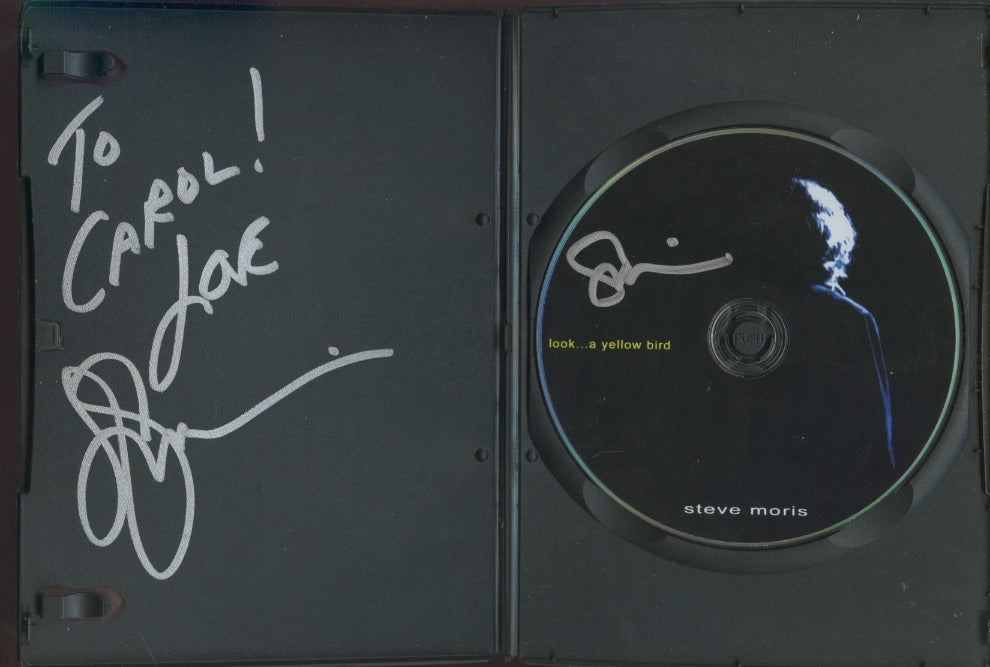 TO
CAROL!
LOVE
look...a yellow bird
PUSH
steve moris